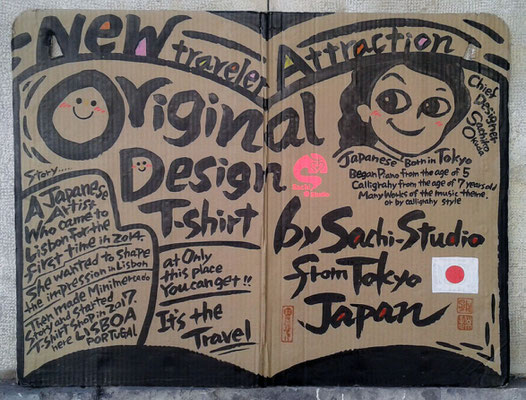 New traveler Attraction
Original
Design
T-shirt
Story....
A Japanese
Artist
Who came to
Lisbon for the
first time in 2014.
She wanted to Shape
the impression in Lisbon
Then made Minimercado
Story and Started
T-shirt shop in 2017.
here LISBOA
PORTUGAL
at Only
this place
You can get!!
It's the
Travel
Chief
Designer
Sachiko
Okuda
Japanese Born in Tokyo
Began Piano from the age of 5
Calligrahy from the age of 7 years old
Many Works of the music theme,
or by caligrahy style
Sachi
Studio
by Sachi-Studio
from Tokyo
Japan